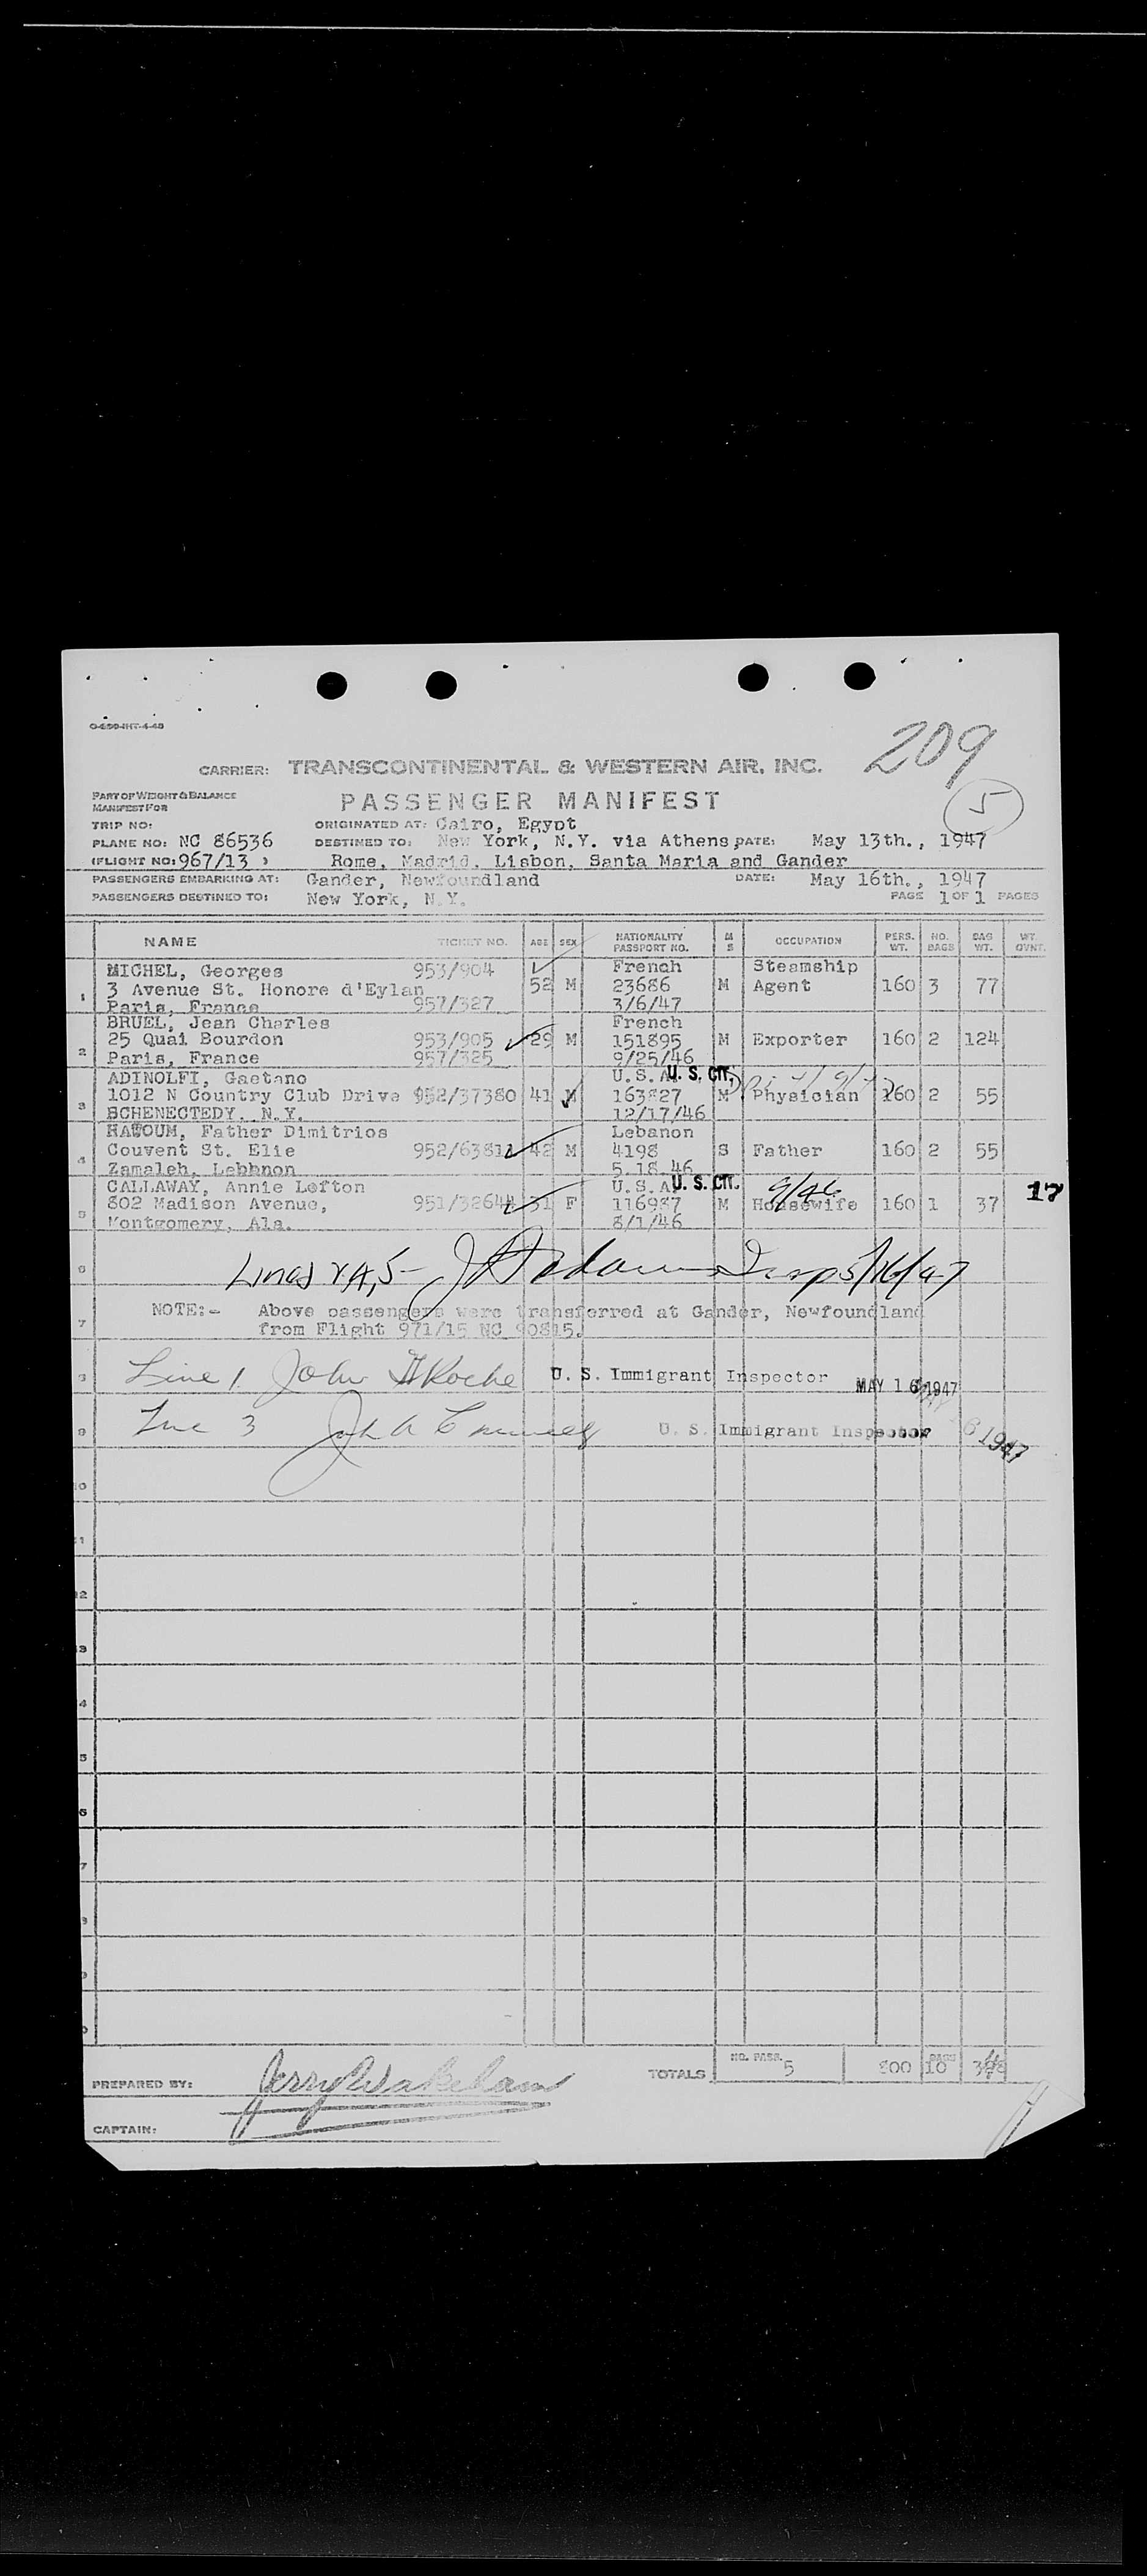 O-659-INT-4-46
209
CARRIER: TRANSCONTINENTAL & WESTERN AIR, INC.
PART OF WEIGHT & BALANCE
MANIFEST FOR
PASSENGER MANIFEST
5
TRIP NO: ORIGINATED AT: Cairo, Egypt
PLANE NO: NC 86536 DESTINED TO: New York, N.Y. via Athens, DATE: May 13th., 1947
(FLIGHT NO: 967/13 ) Rome, Madrid, Lisbon, Santa Maria and Gander
PASSENGERS EMBARKING AT: Gander, Newfoundland DATE: May 16th., 1947
PASSENGERS DESTINED TO: New York, N.Y. PAGE 1 OF 1 PAGES
NAME TICKET NO. AGE SEX NATIONALITY PASSPORT NO. M S OCCUPATION PERS. WT. NO. BAGS BAG WT. WT. OVNT.
MICHEL, Georges 953/904 French Steamship
1 3 Avenue St. Honore d'Eylan 52 M 23686 M Agent 160 3 77
Paris, France 957/327 3/6/47
BRUEL, Jean Charles French
2 25 Quai Bourdon 953/905 29 M 151895 M Exporter 160 2 124
Paris, France 957/325 9/25/46
ADINOLFI, Gaetano U.S.A. U. S. CIT.
3 1012 N Country Club Drive 952/37380 41 M 163827 M Physician 160 2 55
SCHENECTEDY, N.Y. 12/17/46
HATOUM, Father Dimitrios Lebanon
4 Couvent St. Elie 952/63811 42 M 4198 S Father 160 2 55
Zamaleh, Lebhnon 5.18.46
CALLAWAY, Annie Lofton U.S.A. U. S. CIT.
5 802 Madison Avenue, 951/32644 31 F 116987 M Housewife 160 1 37 17
Montgomery, Ala. 8/1/46
6 Lines 2,4,5- Insp 5/16/47
7 NOTE:- Above passengers were transferred at Gander, Newfoundland
from Flight 971/15 NC 90815.
8 Line 1. John Roche U. S. Immigrant Inspector MAY 16 1947
9 Line 3 U. S. Immigrant Inspector MAY 16 1947
10
11
12
3
4
5
6
7
8
9
0
TOTALS NO. PASS. 5 800 10
PREPARED BY: Jerry Wakeham
CAPTAIN: